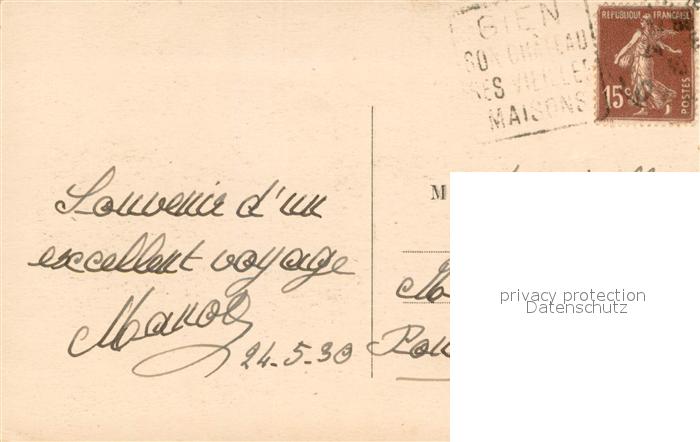 GIEN
SON CHÂTEAU
SES VIEILLES
MAISONS
REPUBLIQUE FRANÇAISE
15c
POSTES
M
Souvenir d'un
excellent voyage
24-5-30
privacy protection
Datenschutz